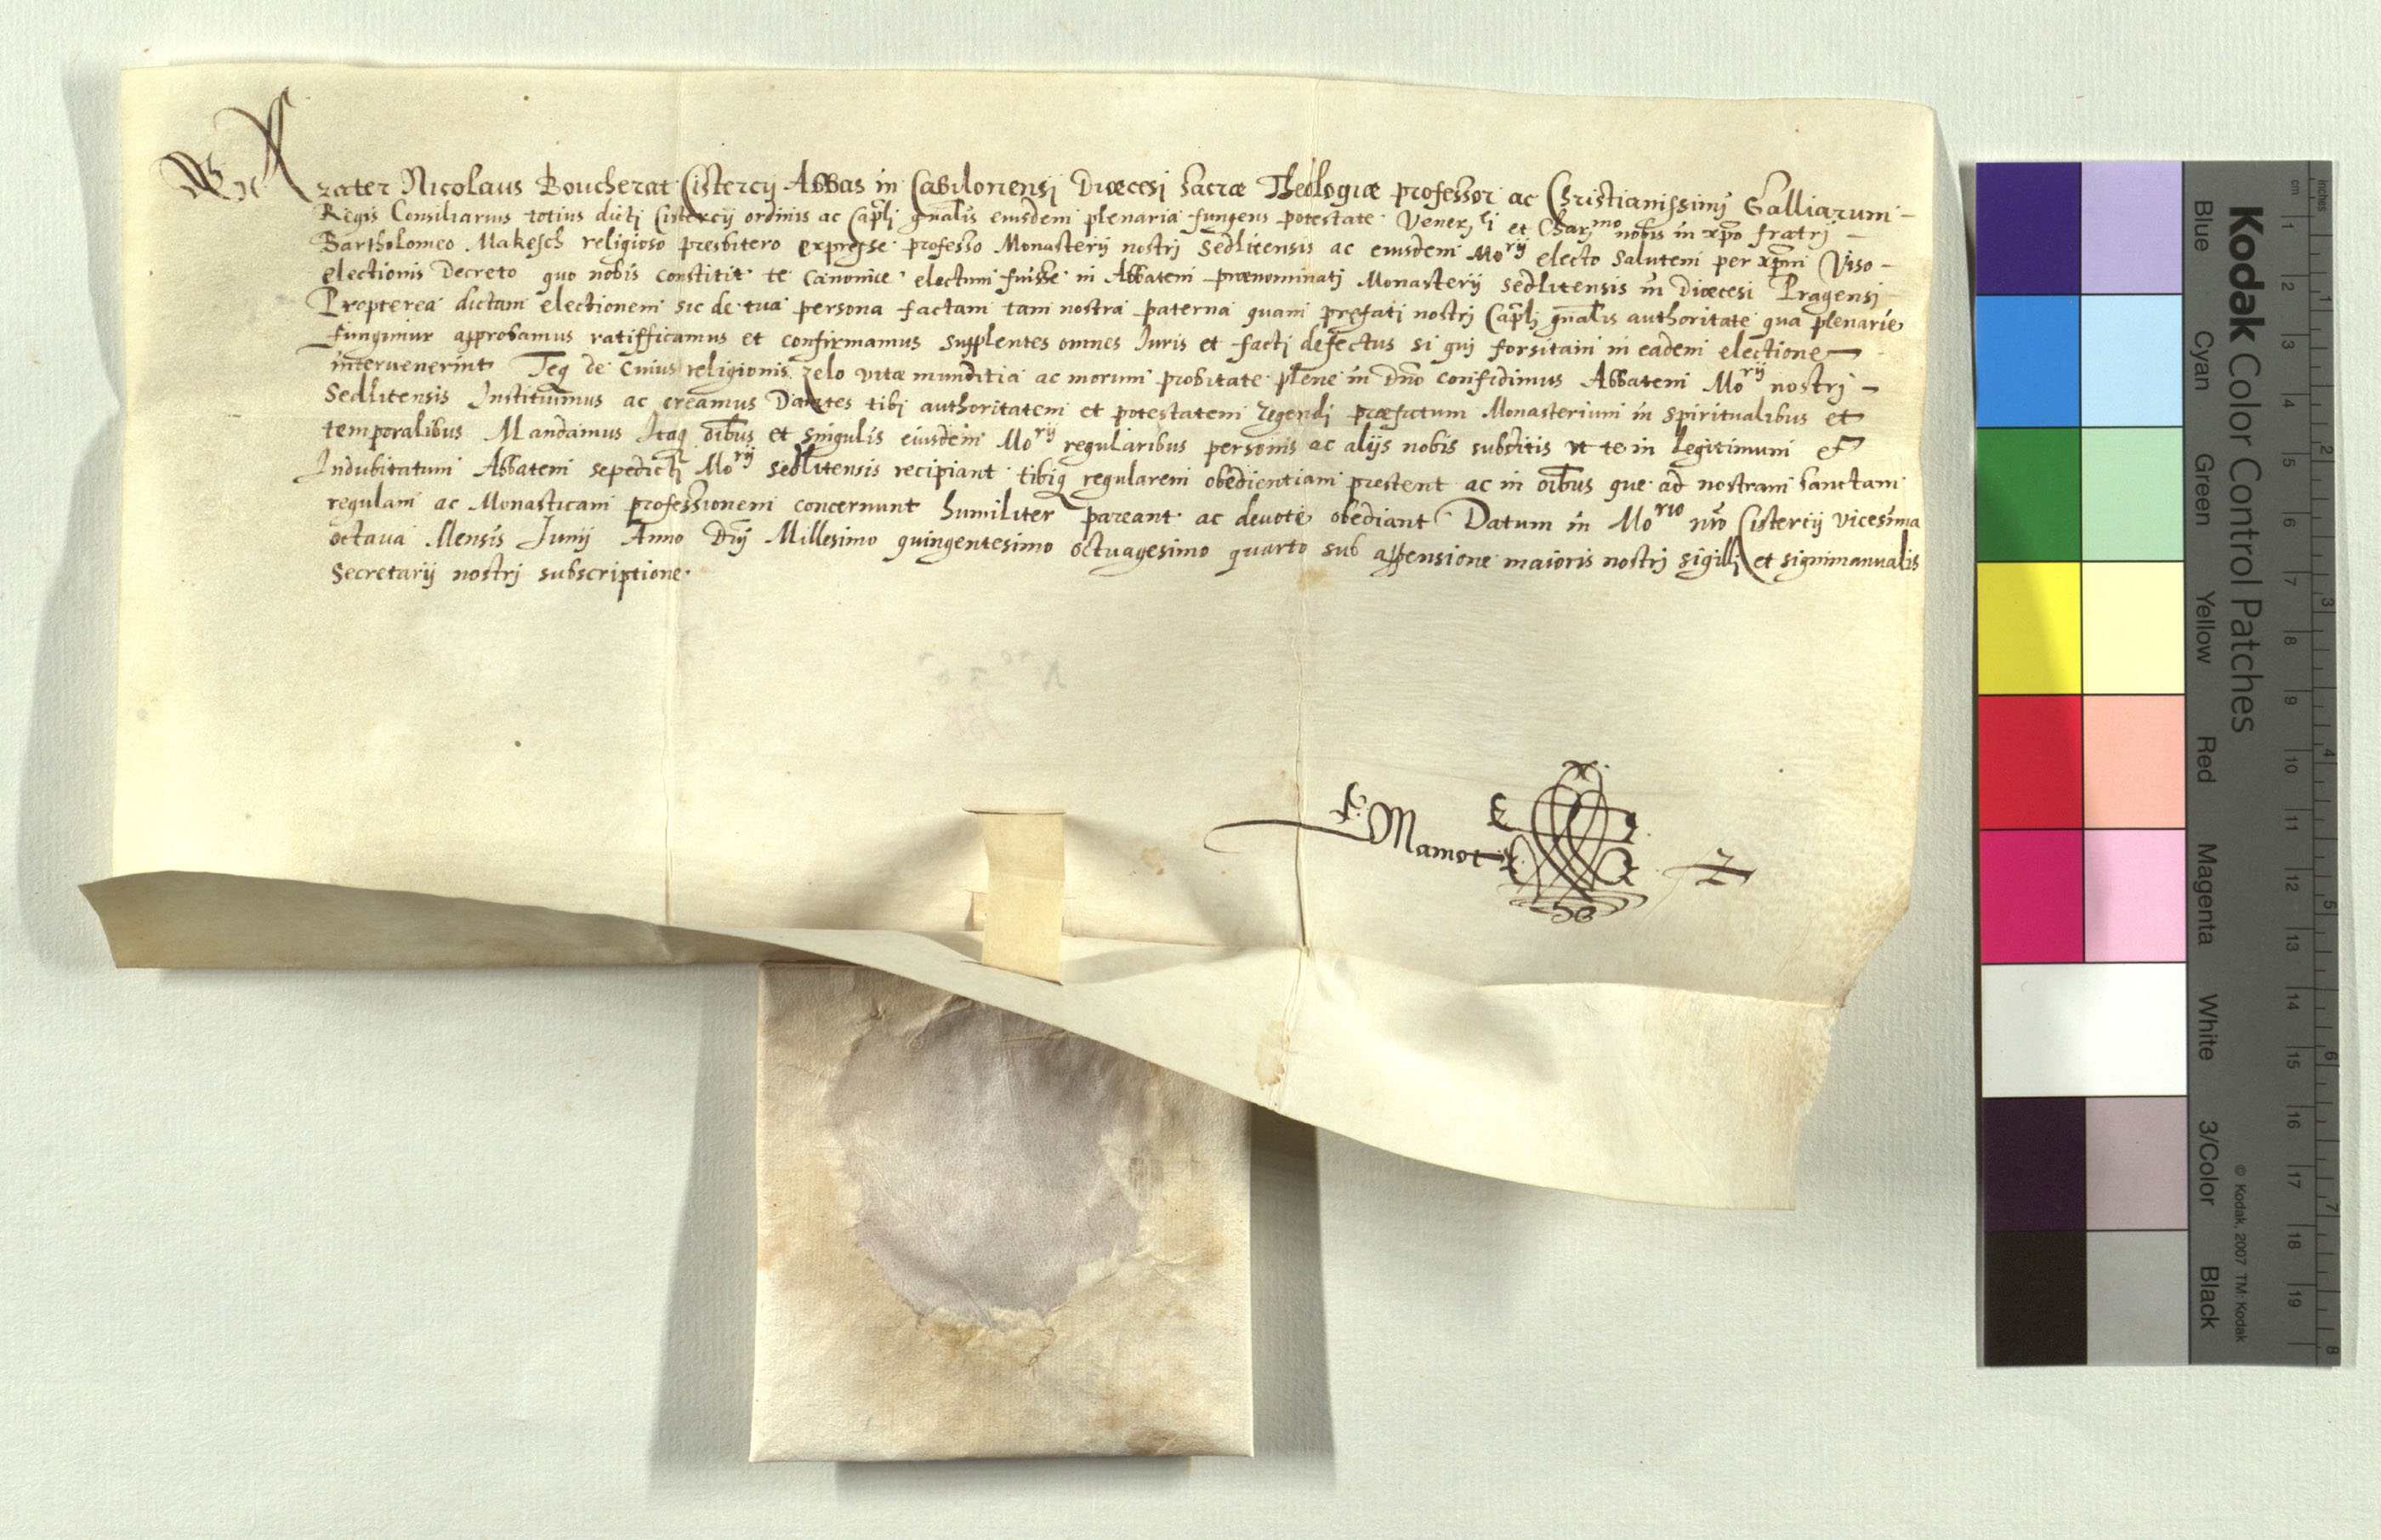 Frater Nicolaus Boucherat Cistercij Abbas in Cabilonensj Diœcesi Sacræ Theologiæ professor ac Christianissimj Galliarum
Regis Consiliarius totius dictj Cistercij ordinis ac Capłj gn̄alis eiusdem plenaria fungens potestate Venerłj et Charjmo nobis in xp̄o fratrj
Bartholomeo Makesch religioso presbitero expresse professo Monasterij nostrj Sedlitensis ac eiusdem Morij electo Salutem per xp̄m Viso
electionis Decreto quo nobis constitit te Canonice electum fuisse in Abbatem prænominatj Monasterij Sedlitensis in Diœcesi Pragensj
Propterea dictam electionem sic de tua persona factam tam nostra paterna quam prefati nostrj Capłj gn̄alis authoritate qua plenarie
fungimur approbamus ratifficamus et confirmamus supplentes omnes Iuris et factj defectus si quj forsitam in eadem electione
intervenerint Teq de cuius religionis zelo vitæ munditia ac morum probitate plene in Dn̄o confidimus Abbatem Morij nostrj
Sedlitensis Instituimus ac creamus Dantes tibj authoritatem et potestatem regendj præfatum Monasterium in spiritualibus et
temporalibus Mandamus Itaq oībus et singulis eiusdem Morij regularibus personis ac alijs nobis subditis vt te in legitimum et
Indubitatum Abbatem sepedictj Morij sedlitensis recipiant tibiq regularem obedientiam prestent ac in oībus que ad nostram sanctam
regulam ac Monasticam professionem concernunt humiliter pareant ac devote obediant Datum in Morio nr̄o Cistercij vicesima
octaua Mensis Junij Anno Dnj Millesimo quingentesimo octuagesimo quarto sub appensione maioris nostrj sigillj et signimanualis
Secretarij nostrj subscriptione.
f. Mamot
Kodak Color Control Patches
Blue Cyan Green Yellow Red Magenta White 3/Color Black
© Kodak, 2007 TM: Kodak
cm 1 2 3 4 5 6 7 8 9 10 11 12 13 14 15 16 17 18 19
inches 1 2 3 4 5 6 7 8